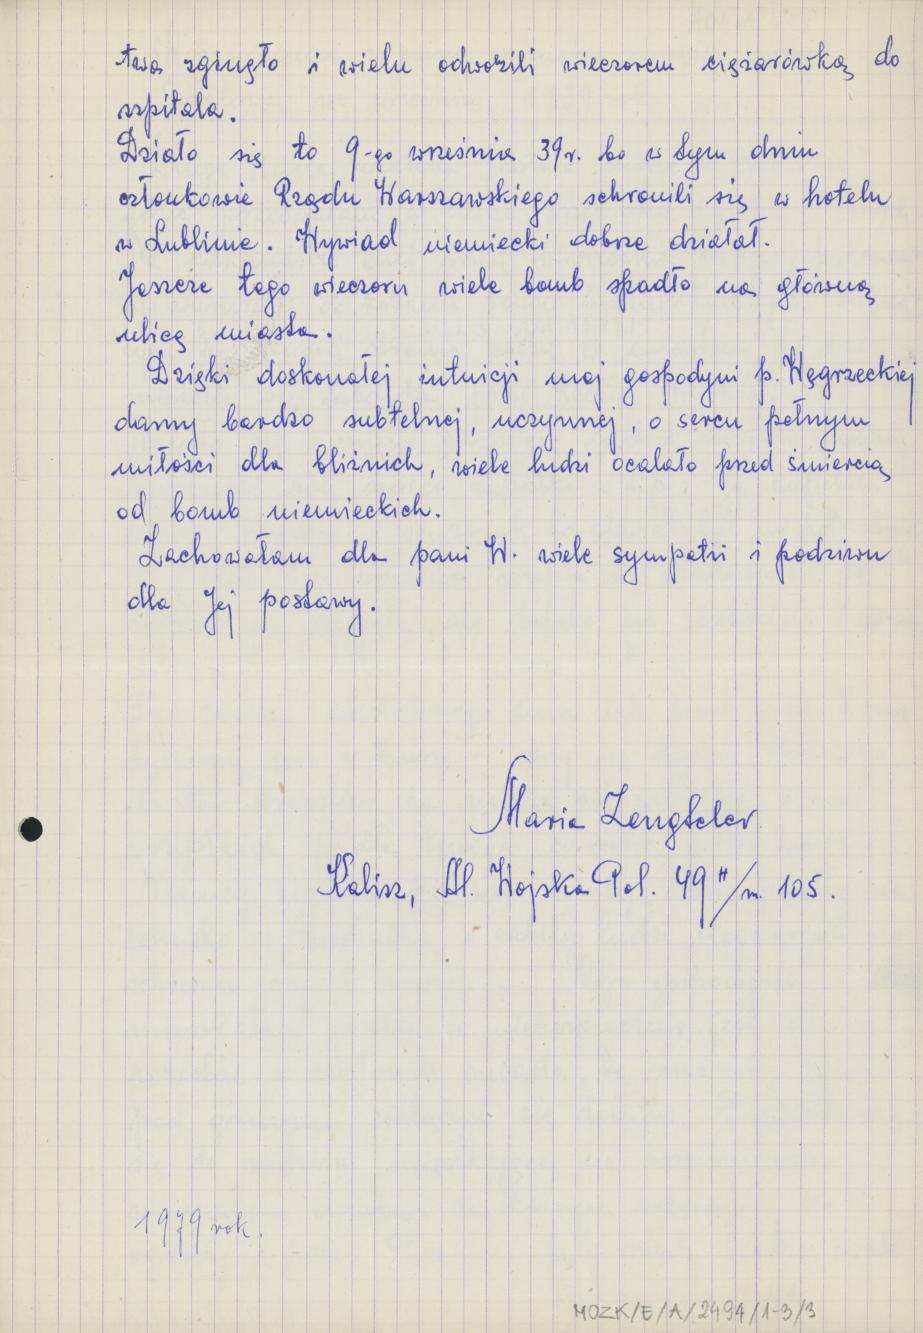 twa zginęło i wielu odwozili wieczorem ciężarówką do
szpitala.
Działo się to 9-go września 39r. bo w tym dniu
członkowie Rządu Warszawskiego schronili się w hotelu
w Lublinie. Wywiad niemiecki dobrze działał.
Jeszcze tego wieczoru wiele bomb spadło na główną
ulicę miasta.
Dzięki doskonałej intuicji moj gospodyni p. Węgrzeckiej
damy bardzo subtelnej, uczynnej, o sercu pełnym
miłości dla bliźnich, wiele ludzi ocalało przed śmiercią
od bomb niemieckich.
Zachowałam dla pani W. wiele sympatii i podziwu
dla Jej postawy.
Maria Lengteler
Kalisz, Al. Wojska Pol. 49"/m. 105.
1979 rok.
MOZK/E/A/2494/1-3/3